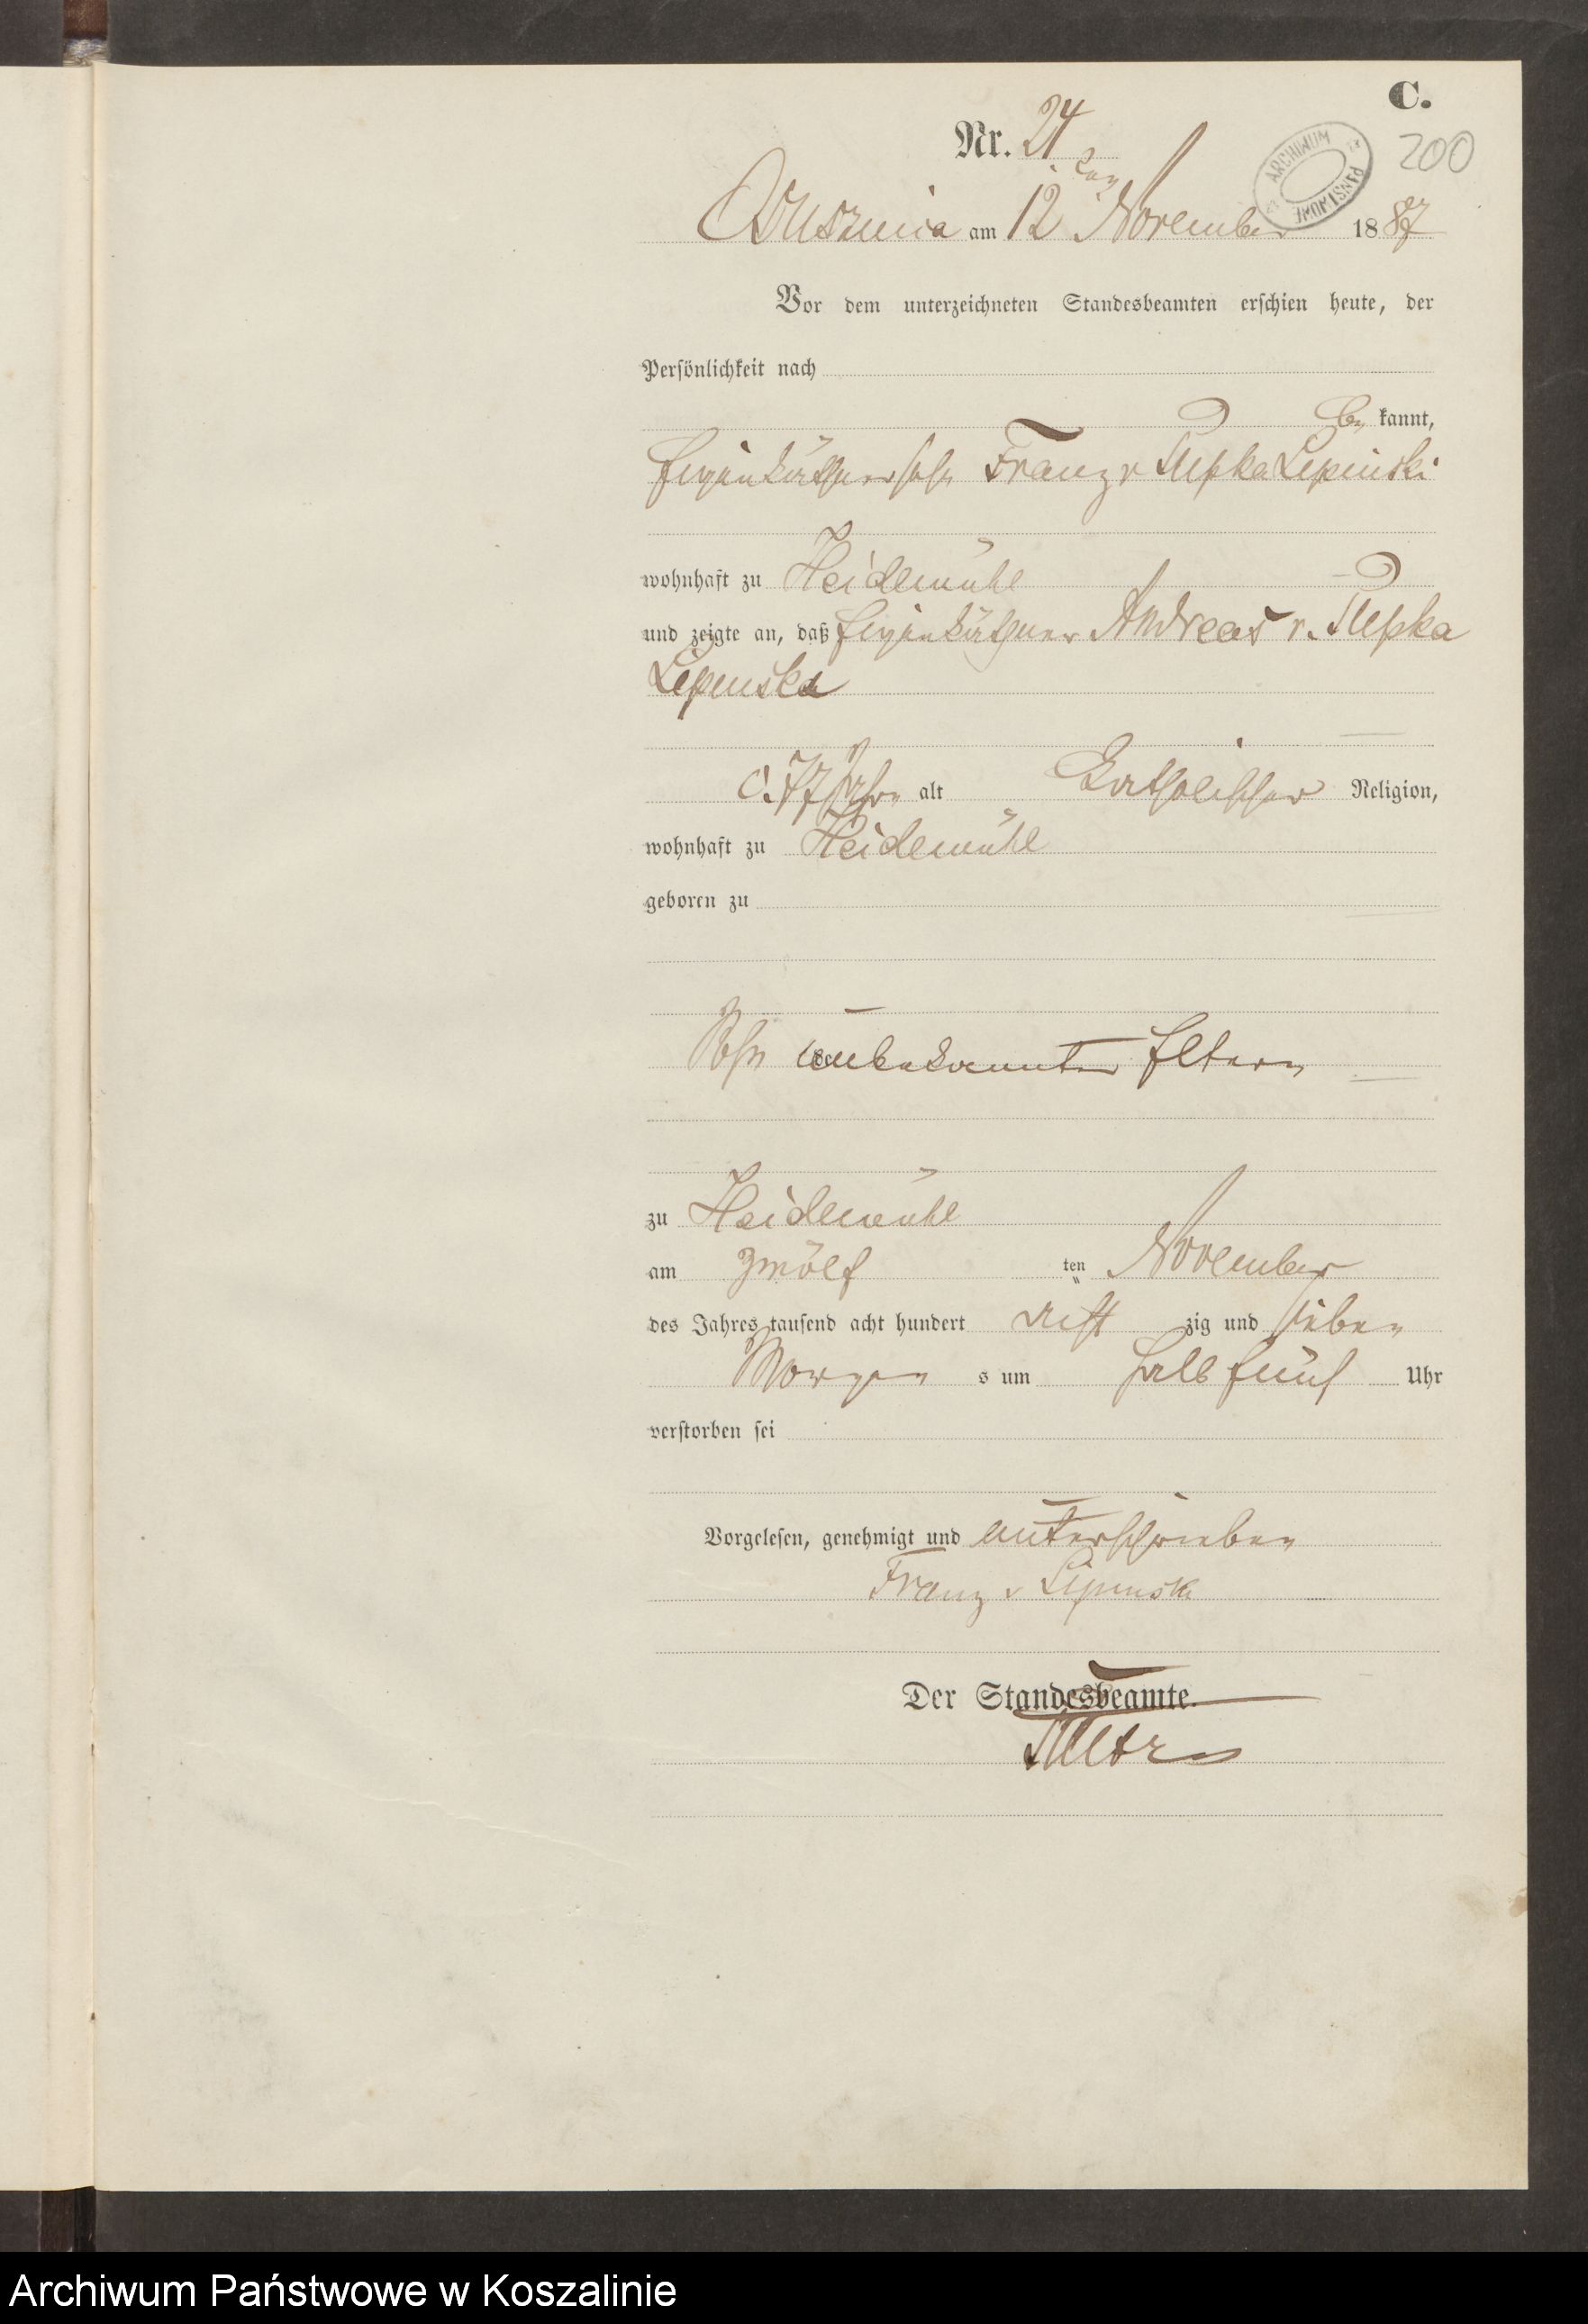 C.
Nr. 24
200
ARCHIWUM PAŃSTWOWE
am 12ten November 1887
Vor dem unterzeichneten Standesbeamten erschien heute, der
Persönlichkeit nach
be kannt,
Eigenkäthnersohn Franz v Lipinski
wohnhaft zu Heidemühl
und zeigte an, daß Eigenkäthner Andreas v.
Lipinski
77 Jahre alt katholischer Religion,
wohnhaft zu Heidemühl
geboren zu
Sohn unbekannter Eltern
zu Heidemühl
am zwölf ten November
des Jahres tausend acht hundert acht zig und sieben
Morgen s um halb fünf Uhr
verstorben sei
Vorgelesen, genehmigt und unterschrieben
Franz v Lipinski
Der Standesbeamte.
Archiwum Państwowe w Koszalinie